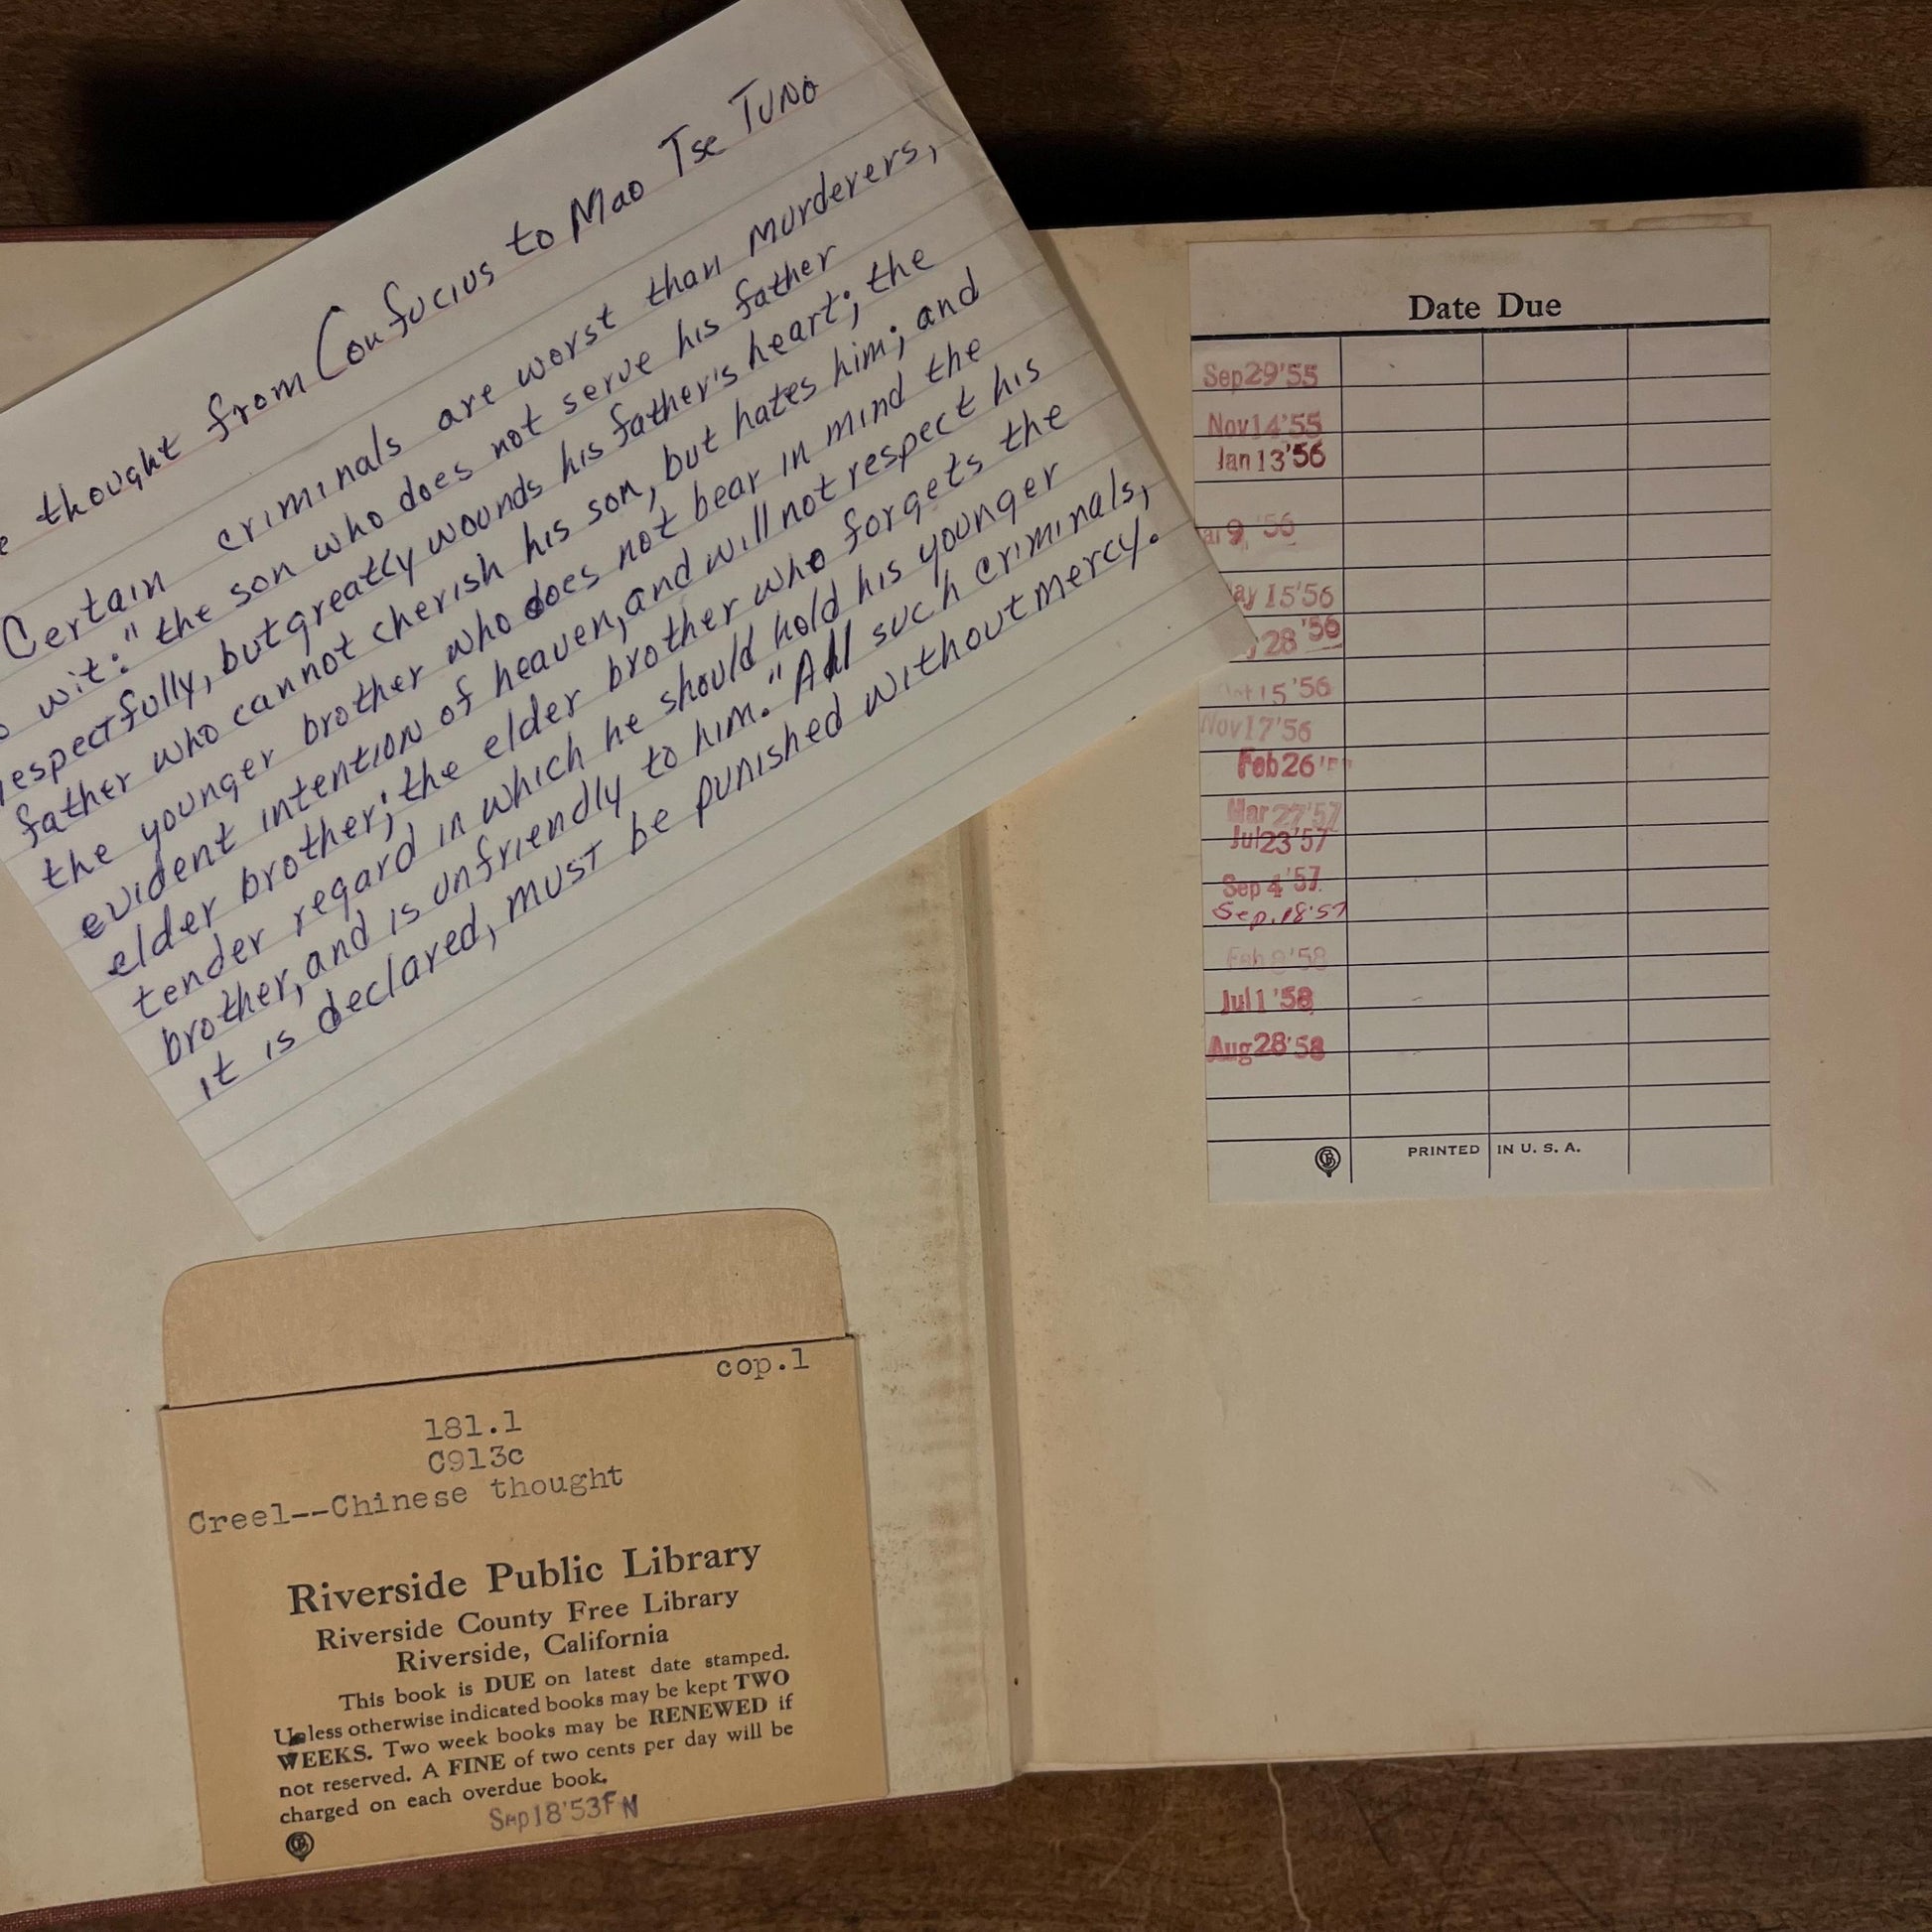 thought from Confucius to Mao Tse Tung
Certain criminals are worst than murderers,
wit: "the son who does not serve his father
respectfully, but greatly wounds his father's heart; the
father who cannot cherish his son, but hates him; and
the younger brother who does not bear in mind the
evident intention of heaven, and will not respect his
elder brother; the elder brother who forgets the
tender regard in which he should hold his younger
brother, and is unfriendly to him." All such criminals,
it is declared, must be punished without mercy.
cop.1
181.1
C913c
Creel--Chinese thought
Riverside Public Library
Riverside County Free Library
Riverside, California
This book is DUE on latest date stamped.
Unless otherwise indicated books may be kept TWO
WEEKS. Two week books may be RENEWED if
not reserved. A FINE of two cents per day will be
charged on each overdue book.
Sep18'53FN
Date Due
Sep29'55
Nov14'55
Jan13'56
9 '56
ay 15'56
28'56
15'56
Nov17'56
Feb26
Mar27'57
Jul23'57
Sep 4'57
Sep.18'57
Feb 8'58
Jul1'58
Aug28'58
PRINTED IN U. S. A.